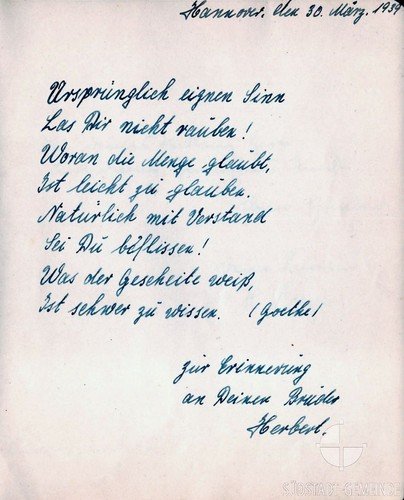 Hannover, den 30. März. 1939
Ursprünglich eignen Sinn
Las Dir nicht rauben!
Woran die Menge glaubt,
Ist leicht zu glauben.
Natürlich mit Verstand
Sei Du beflissen!
Was der Gescheite weiß,
Ist schwer zu wissen. (Goethe)
zur Erinnerung
an Deinen Bruder
Herbert.
SÜDSTADT-GEMEINDE